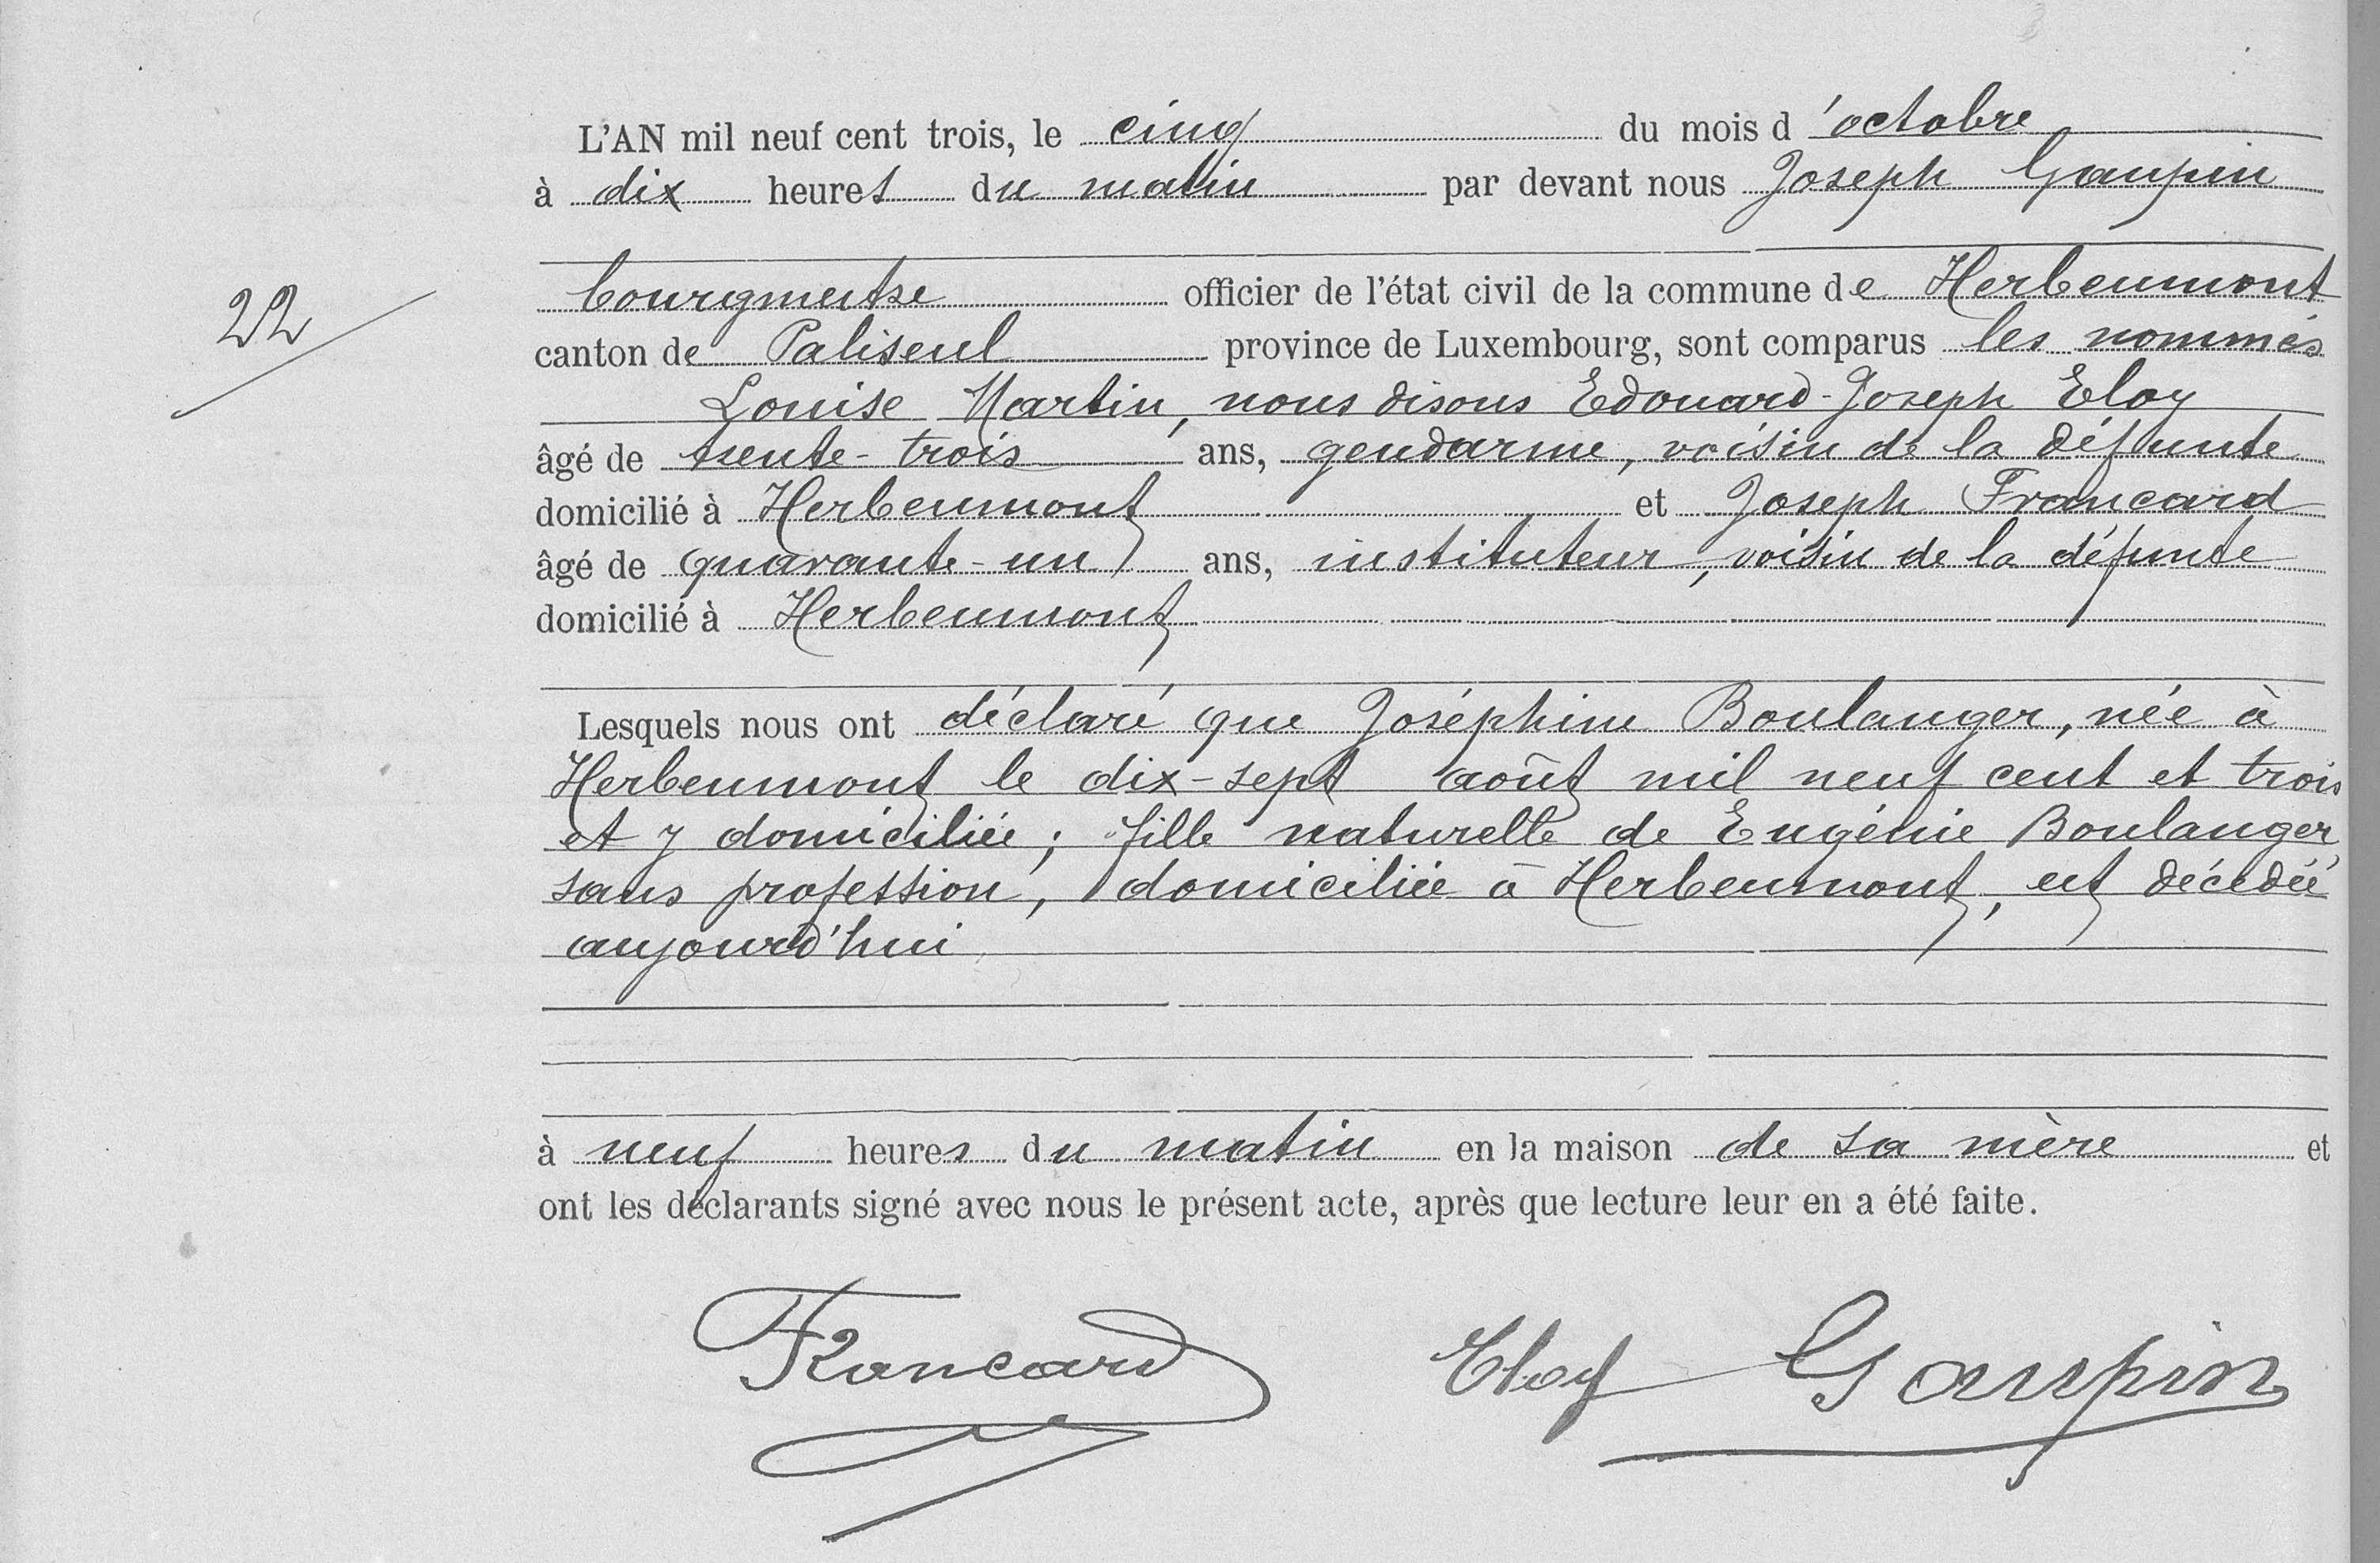 L'AN mil neuf cent trois, le cinq du mois d'octobre
à dix heures du matin par devant nous Joseph Gaupin
bourgmestre officier de l'état civil de la commune de Herbeumont
22
canton de Paliseul province de Luxembourg, sont comparus les nommés
Louise Martin, nous disons Edouard-Joseph Eloy
âgé de trente-trois ans, gendarme, voisin de la défunte
domicilié à Herbeumont et Joseph Francard
âgé de quarante-un ans, instituteur, voisin de la défunte
domicilié à Herbeumont
Lesquels nous ont déclaré que Joséphine Boulanger, née à
Herbeumont le dix-sept août mil neuf cent et trois
et y domiciliée ; fille naturelle de Eugénie Boulanger
sans profession, domiciliée à Herbeumont, est décédée
aujourd'hui
à neuf heures du matin en la maison de sa mère et
ont les déclarants signé avec nous le présent acte, après que lecture leur en a été faite.
Francard Eloy Gaupin